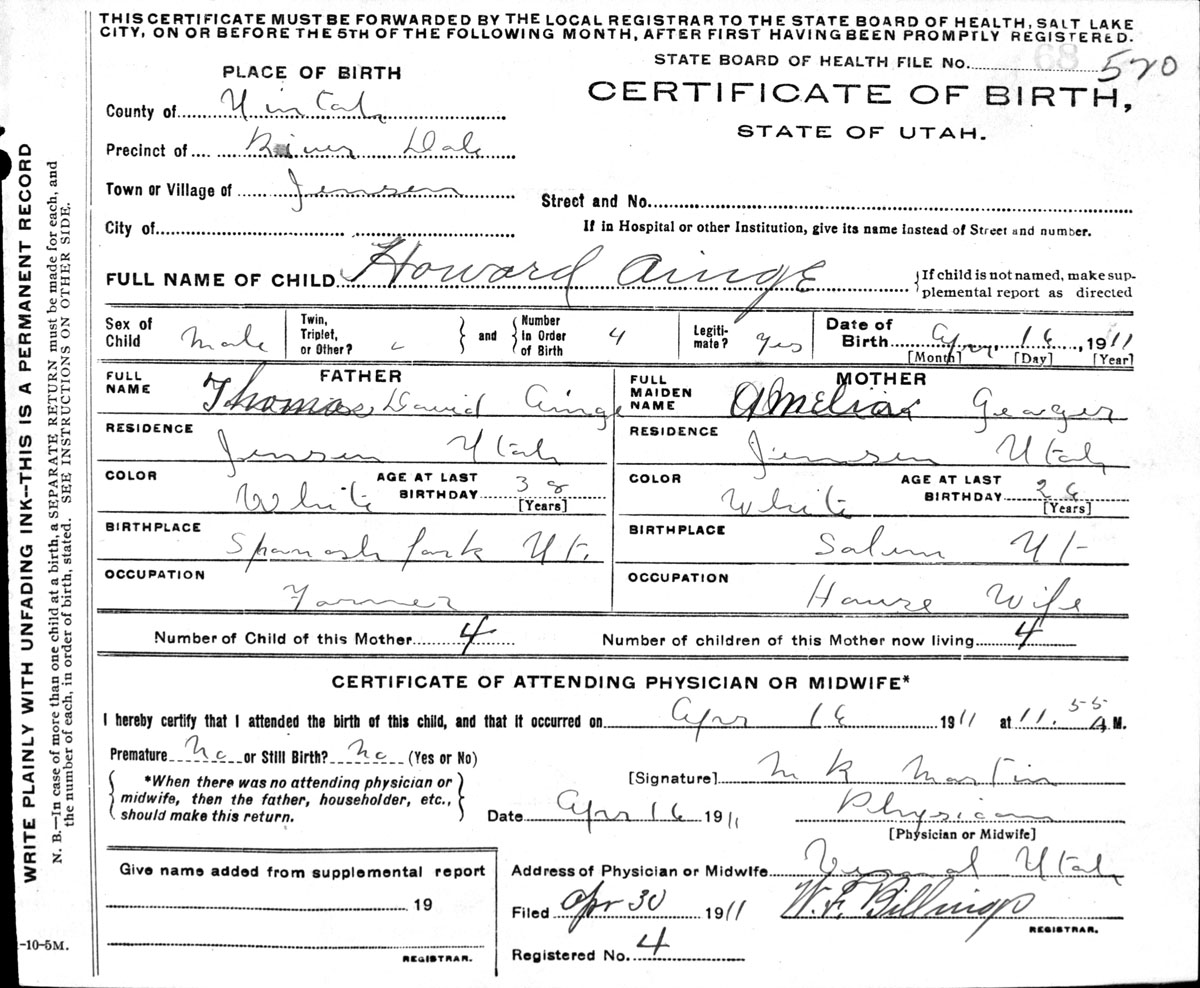 THIS CERTIFICATE MUST BE FORWARDED BY THE LOCAL REGISTRAR TO THE STATE BOARD OF HEALTH, SALT LAKE
CITY, ON OR BEFORE THE 5TH OF THE FOLLOWING MONTH, AFTER FIRST HAVING BEEN PROMPTLY REGISTERED.
STATE BOARD OF HEALTH FILE No. 68 520
PLACE OF BIRTH
CERTIFICATE OF BIRTH,
STATE OF UTAH.
County of Uintah
Precinct of River Dale
Town or Village of Jensen
Street and No.
City of
If in Hospital or other Institution, give its name instead of Street and number.
FULL NAME OF CHILD Howard Ainge
If child is not named, make sup-
plemental report as directed
Sex of Child Male
Twin, Triplet, or Other?
and Number In Order of Birth 4
Legiti-mate? yes
Date of Birth Apr. 16, 1911
[Month] [Day] [Year]
FATHER
FULL NAME Thomas David Ainge
MOTHER
FULL MAIDEN NAME Amelia
RESIDENCE Jensen Utah
RESIDENCE Jensen Utah
COLOR White AGE AT LAST BIRTHDAY 38 [Years]
COLOR White AGE AT LAST BIRTHDAY 26 [Years]
BIRTHPLACE Spanash fork Ut.
BIRTHPLACE Salem Ut
OCCUPATION Farmer
OCCUPATION House Wife
Number of Child of this Mother 4
Number of children of this Mother now living 4
CERTIFICATE OF ATTENDING PHYSICIAN OR MIDWIFE*
I hereby certify that I attended the birth of this child, and that it occurred on Apr 16 1911 at 11.55 A M.
Premature No or Still Birth? No (Yes or No)
*When there was no attending physician or
midwife, then the father, householder, etc.,
should make this return.
[Signature] M K Martin
Date Apr 16 1911
Physician
[Physician or Midwife]
Give name added from supplemental report
19
REGISTRAR.
Address of Physician or Midwife Vernal Utah
Filed Apr 30 1911 W. F. Billings
REGISTRAR.
Registered No. 4
WRITE PLAINLY WITH UNFADING INK--THIS IS A PERMANENT RECORD
N. B.—In case of more than one child at a birth, a SEPARATE RETURN must be made for each, and
the number of each, in order of birth, stated. SEE INSTRUCTIONS ON OTHER SIDE.
-10-5M.